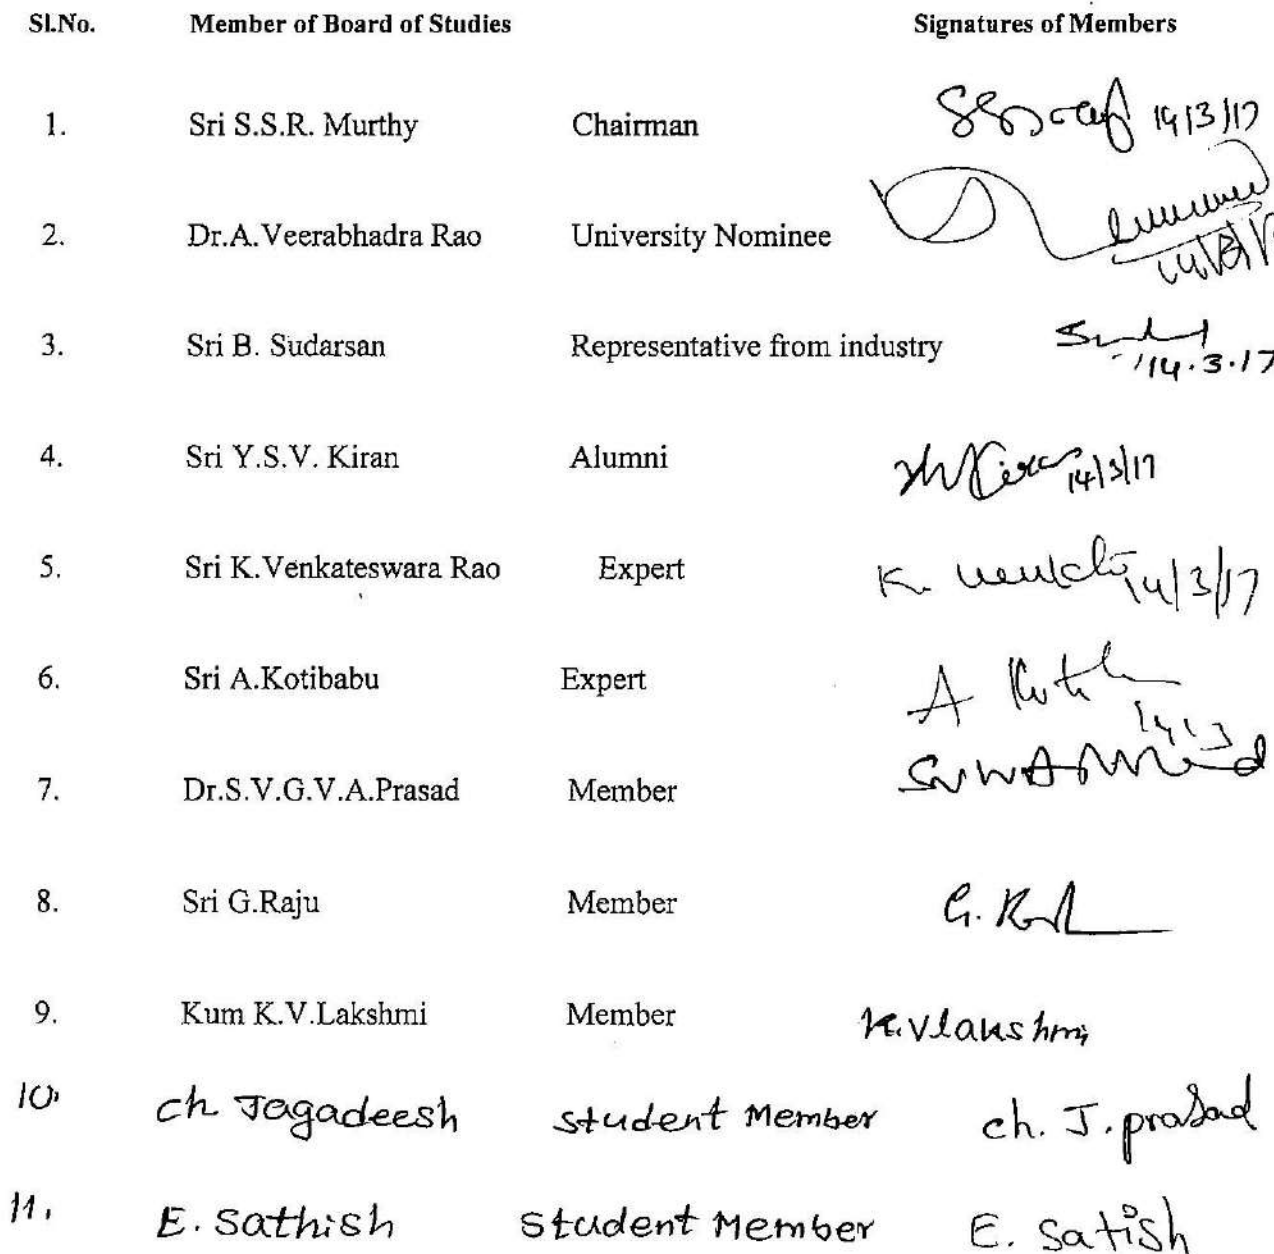 Sl.No. Member of Board of Studies Signatures of Members
1. Sri S.S.R. Murthy Chairman 14/3/17
2. Dr.A.Veerabhadra Rao University Nominee
3. Sri B. Sudarsan Representative from industry 14.3.17
4. Sri Y.S.V. Kiran Alumni 14/3/17
5. Sri K.Venkateswara Rao Expert K. 14/3/17
6. Sri A.Kotibabu Expert A
7. Dr.S.V.G.V.A.Prasad Member
8. Sri G.Raju Member G.
9. Kum K.V.Lakshmi Member K.Vlakshmi
10. ch Jagadeesh student Member ch. J. prasad
11. E. Sathish Student Member E. Satish